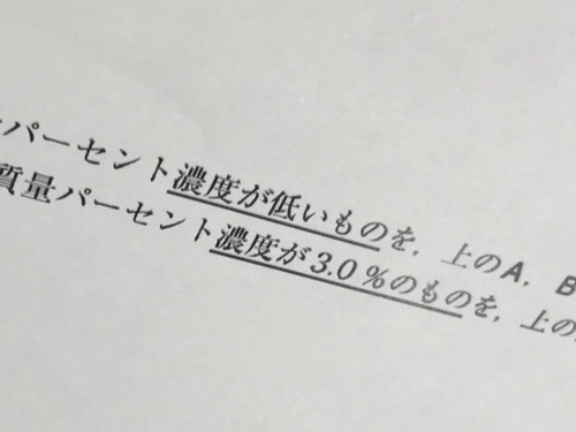 パーセント濃度が低いものを，上のA，B
質量パーセント濃度が3.0％のものを，上の